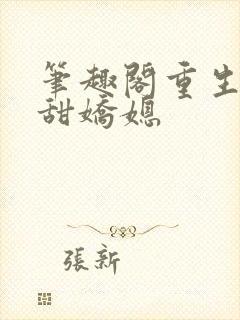 筆趣閣重生
甜嬌媳
張新